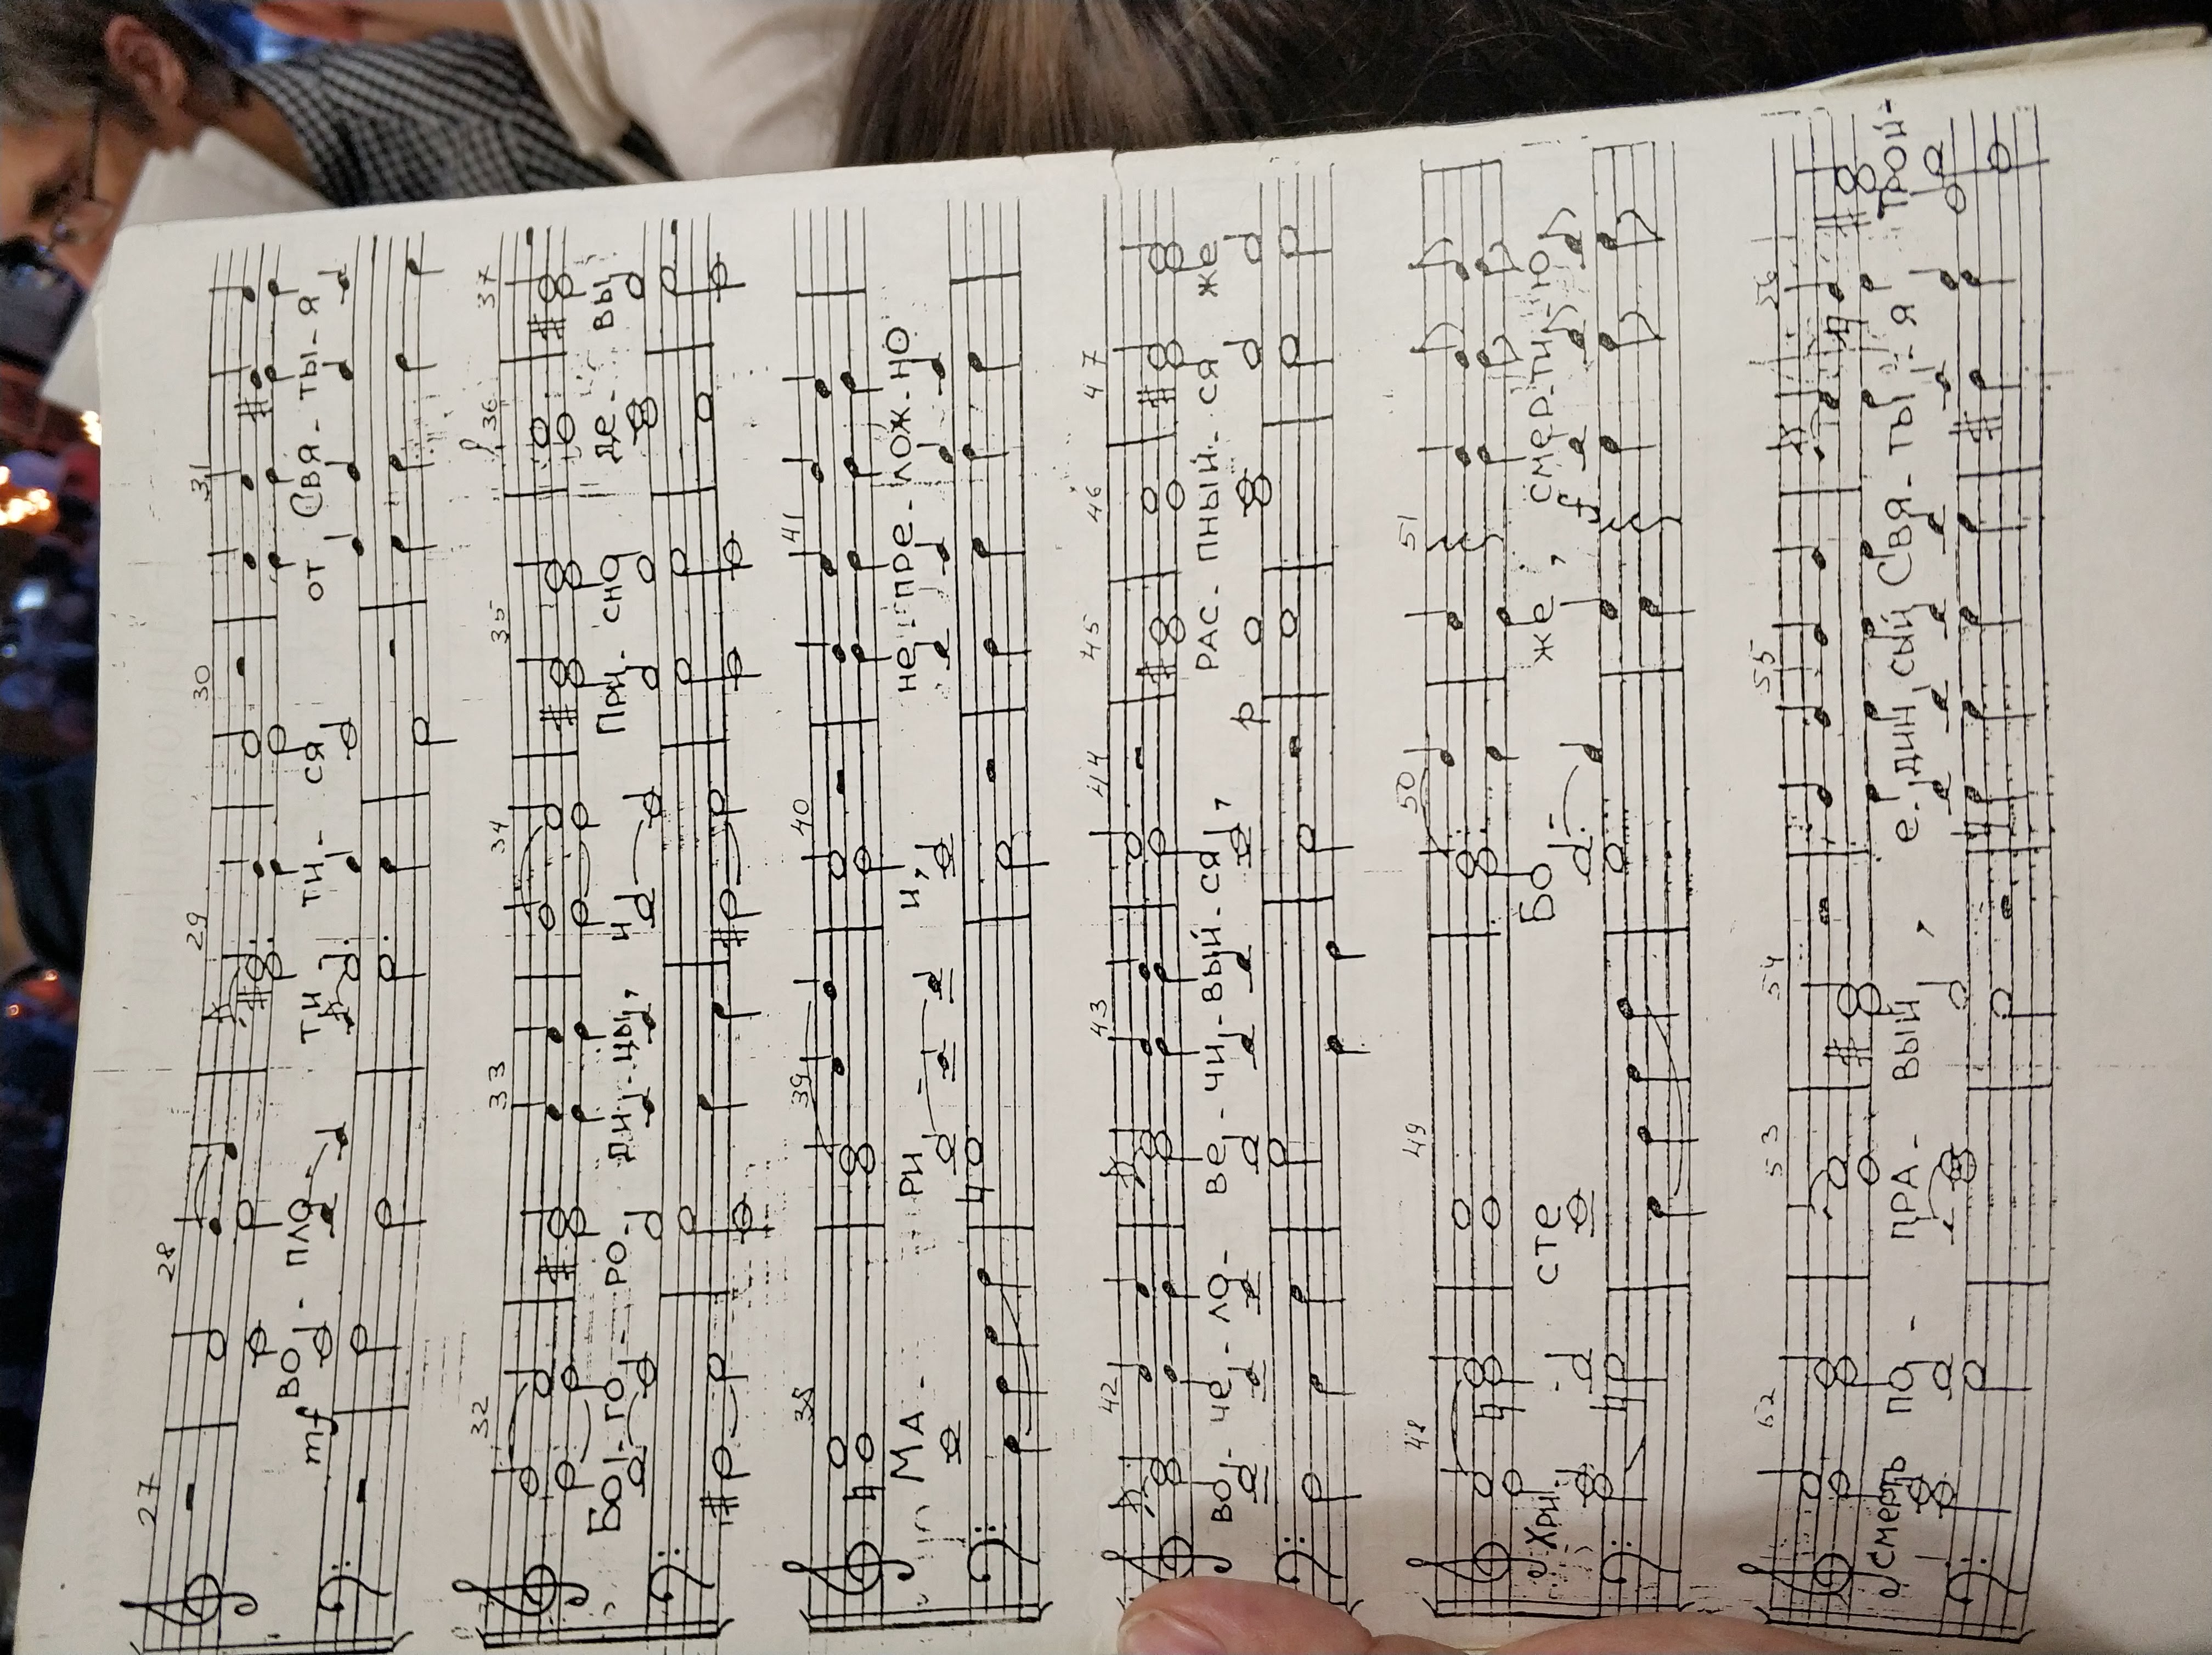 27 28 29 30 31
во - пло - ти - ти - ся от Свя - ты - я
mf
32 33 34 35 36 37
Бо - го - ро - ди - цы, и При - сно де - вы
38 39 40 41
Ма - ри - и, не - пре - лож - но
42 43 44 45 46 47
во - че - ло - ве - чи - вый - ся, рас - пный - ся же
p
48 49 50 51
Хри - сте Бо же, смер - ти - ю
f
52 53 54 55 56
Смерть по - пра - вый, е - дин сый Свя - ты - я Трой -